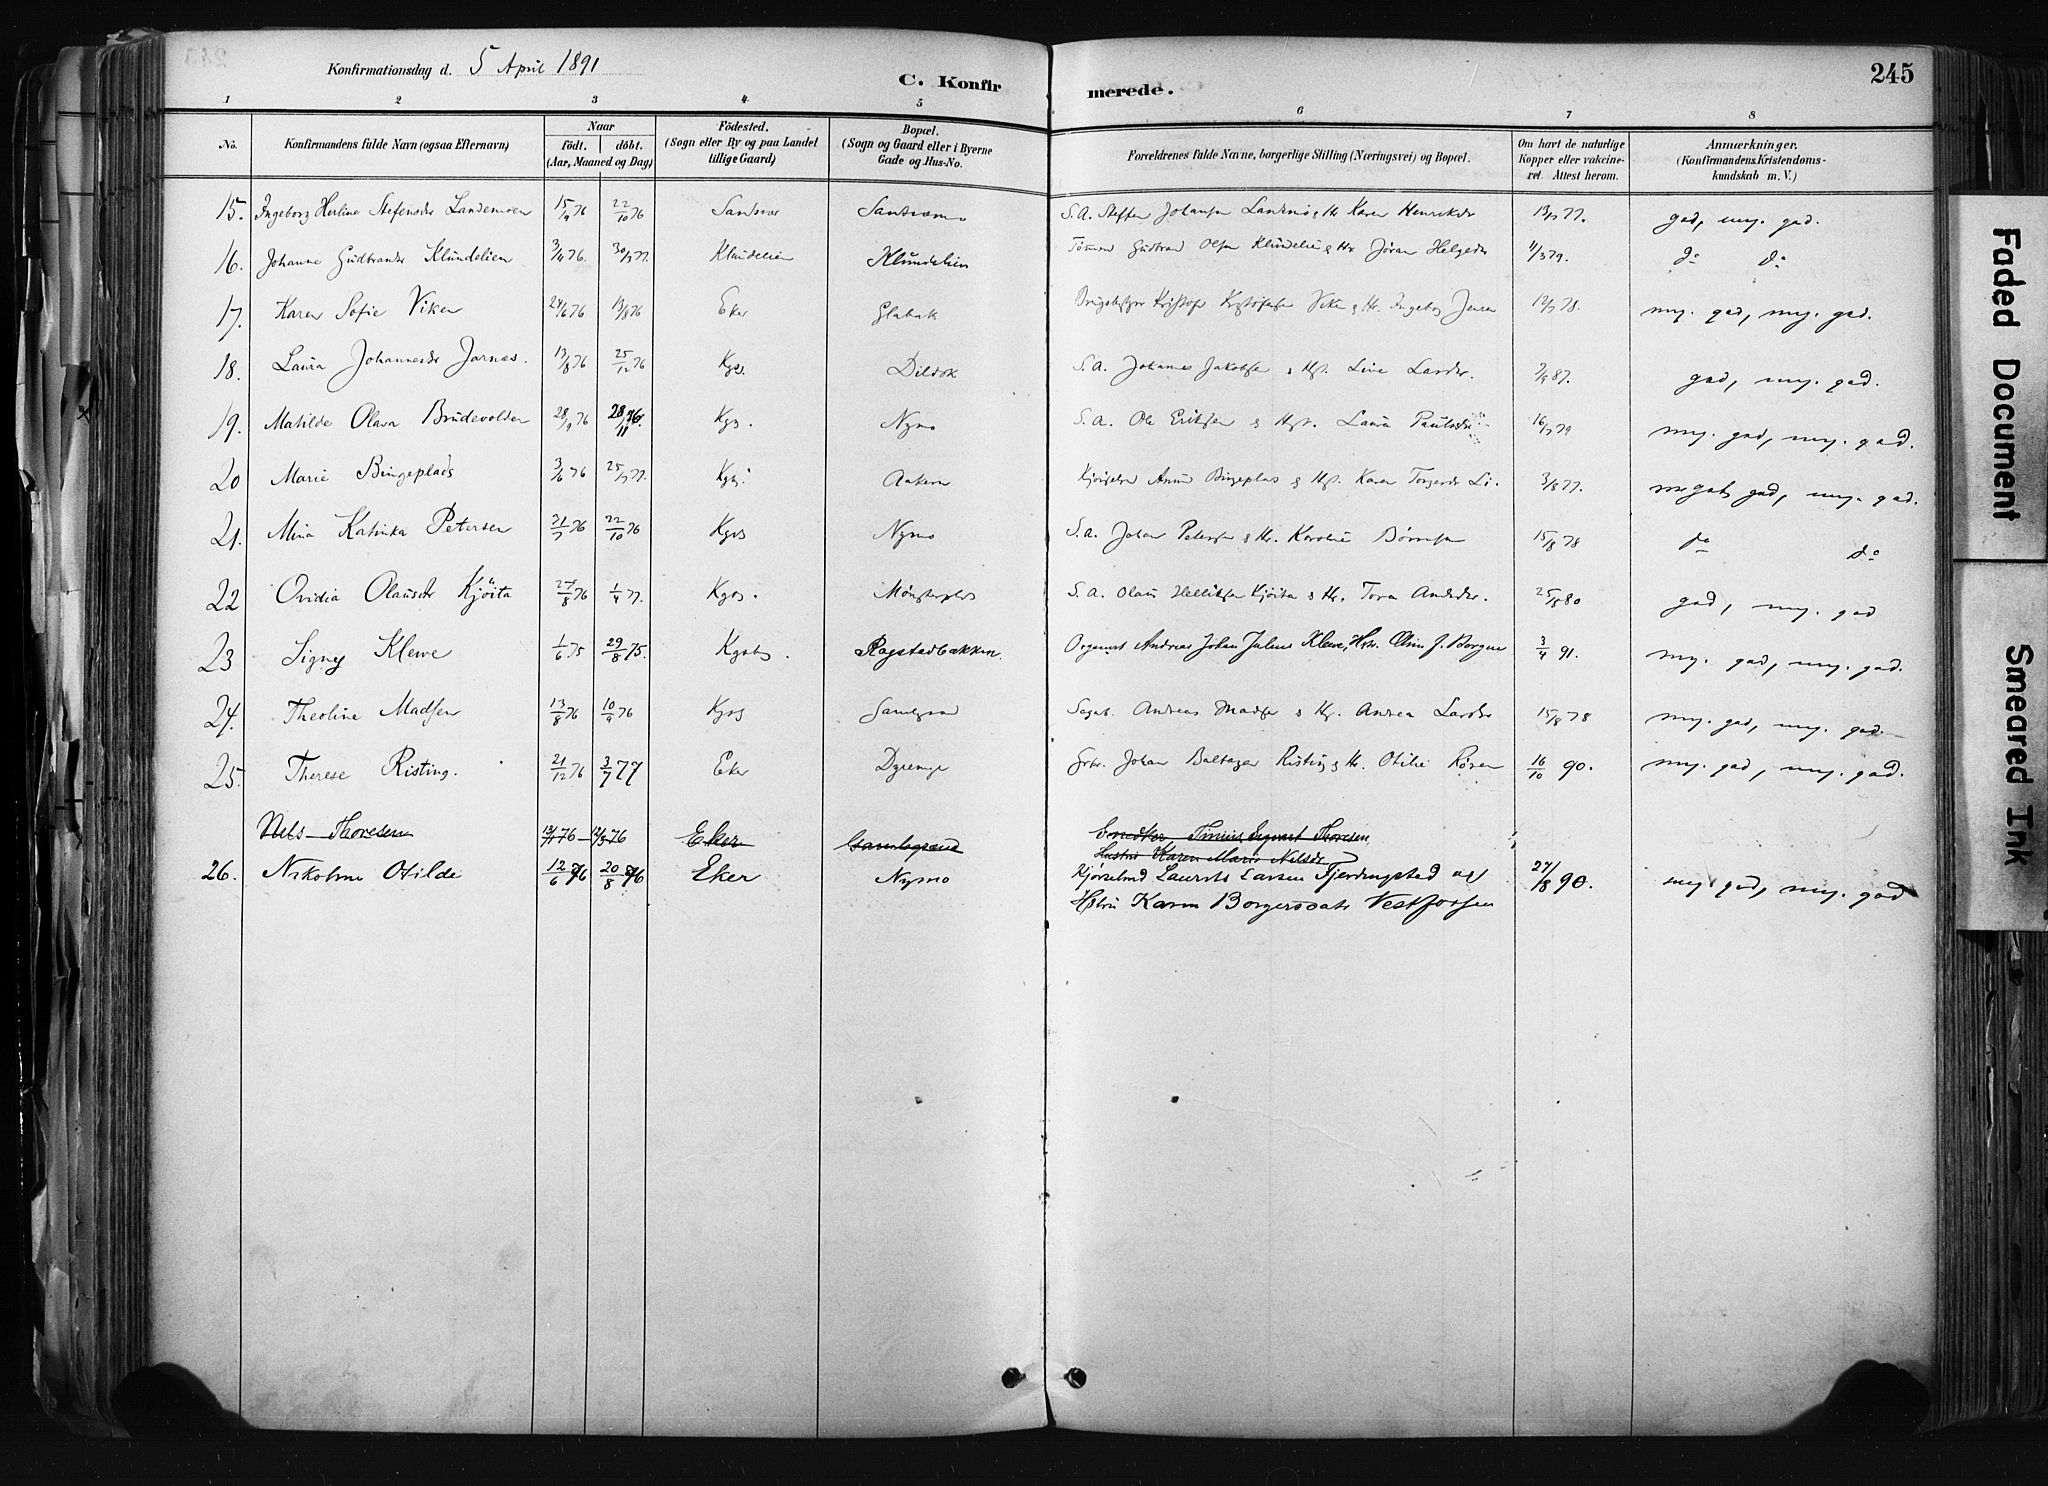 Konfirmationsdag d. 5 April 1891
C. Konfirmerede.
245
1 2 3 4 5 6 7 8
No. Konfirmandens fulde Navn (ogsaa Efternavn) Naar födt. döbt. (Aar, Maaned og Dag) Födested. (Sogn eller By og paa Landet tillige Gaard) Bopæl. (Sogn og Gaard eller i Byerne Gade og Hus-No. Forældrenes fulde Navne, borgerlige Stilling (Næringsvei) og Bopæl. Om havt de naturlige Kopper eller vakcineret. Attest herom. Anmærkninger. (Konfirmandens Kristendomskundskab m. V.)
15. Ingeborg Herline Stefensdr Landemoen 15/9 76 22/10 76 Sandsvær S.A. Steffen Johansen & Hr Karen Henriksdr 77. god, my. god.
16. Johanne Gudbrandsdr Klundelien 3/4 76. 30/3 77. Klundelien Klundelien Gudbrand Olsen Klundelien & Hr Jøran Helgesdr 11/3 79. do do
17. Karen Sofie Viken 24/6 76 13/8 76 Eker Glabak Kristofer Kristofersen Viken & Hr. Ingeborg Jensen 78. my. god, my. god.
18. Laura Johannesdr Jarnæs. 13/8 76 25/12 76 Kgsb. Dildok S.A. Johannes Jakobsen & Hst. Line Larsdr. 2/9 87. god, my. god.
19. Matilde Olava Brudevolden 28/9 76 28/11 76. Kgsb. Nymo S.A. Ole Eriksen & Hst. Laura Paulsdr 16/7 79 my. god, my. god.
20 Marie Bingeplads 3/6 76 25/3 77. Kgsb. Bingeplas & Hst. Karen Torgersdr Li. 3/8 77. meget god, my. god.
21. Mina Katinka Petersen 21/7 76 22/10 76 Kgsb Nymo S.A. Johan Petersen & Hr. Karoline 15/8 78 do do
22 Ovidia Olausdr Kjöita 27/8 76 1/4 77. Kgsb. S.A. Olaus Helliksen Kjöita & Hr. Tora Andersdr. 25/8 80 god, my. god
23 Signy Klewe 1/6 75 29/8 75. Kgsbg. Ragstadbakken. Organist Andreas Johan Julius Klewe, Hstr. J. Borgen 3/4 91. my. god, my. god.
24. Theoline Madsen 13/8 76 10/9 76 Kgsbg Gamlegrænd Andreas Madsen & Hr. Andrea Larsdr 15/8 78 my. god, my. god.
25. Therese Risting. 21/12 76 3/7 77 Eker Dyremyr Johan Baltazar Risting & Hr. Otilie 16/10 90. my. god, my. god.
Nils Thoresen 13/1 76 12/3 76 Eker Gamlegrænd Snedker Sigvart Thoresen
Hustru Karen Marie Nilsdr
26. Nikoline Otilde 12/6 76 20/8 76 Eker Nymo Kjørselmd Laurits Larsen Fjerdingstad og 27/8 90. my. god, my. god
Hstru Karen Borgersdatr Vestfossen
Faded Document
Smeared Ink